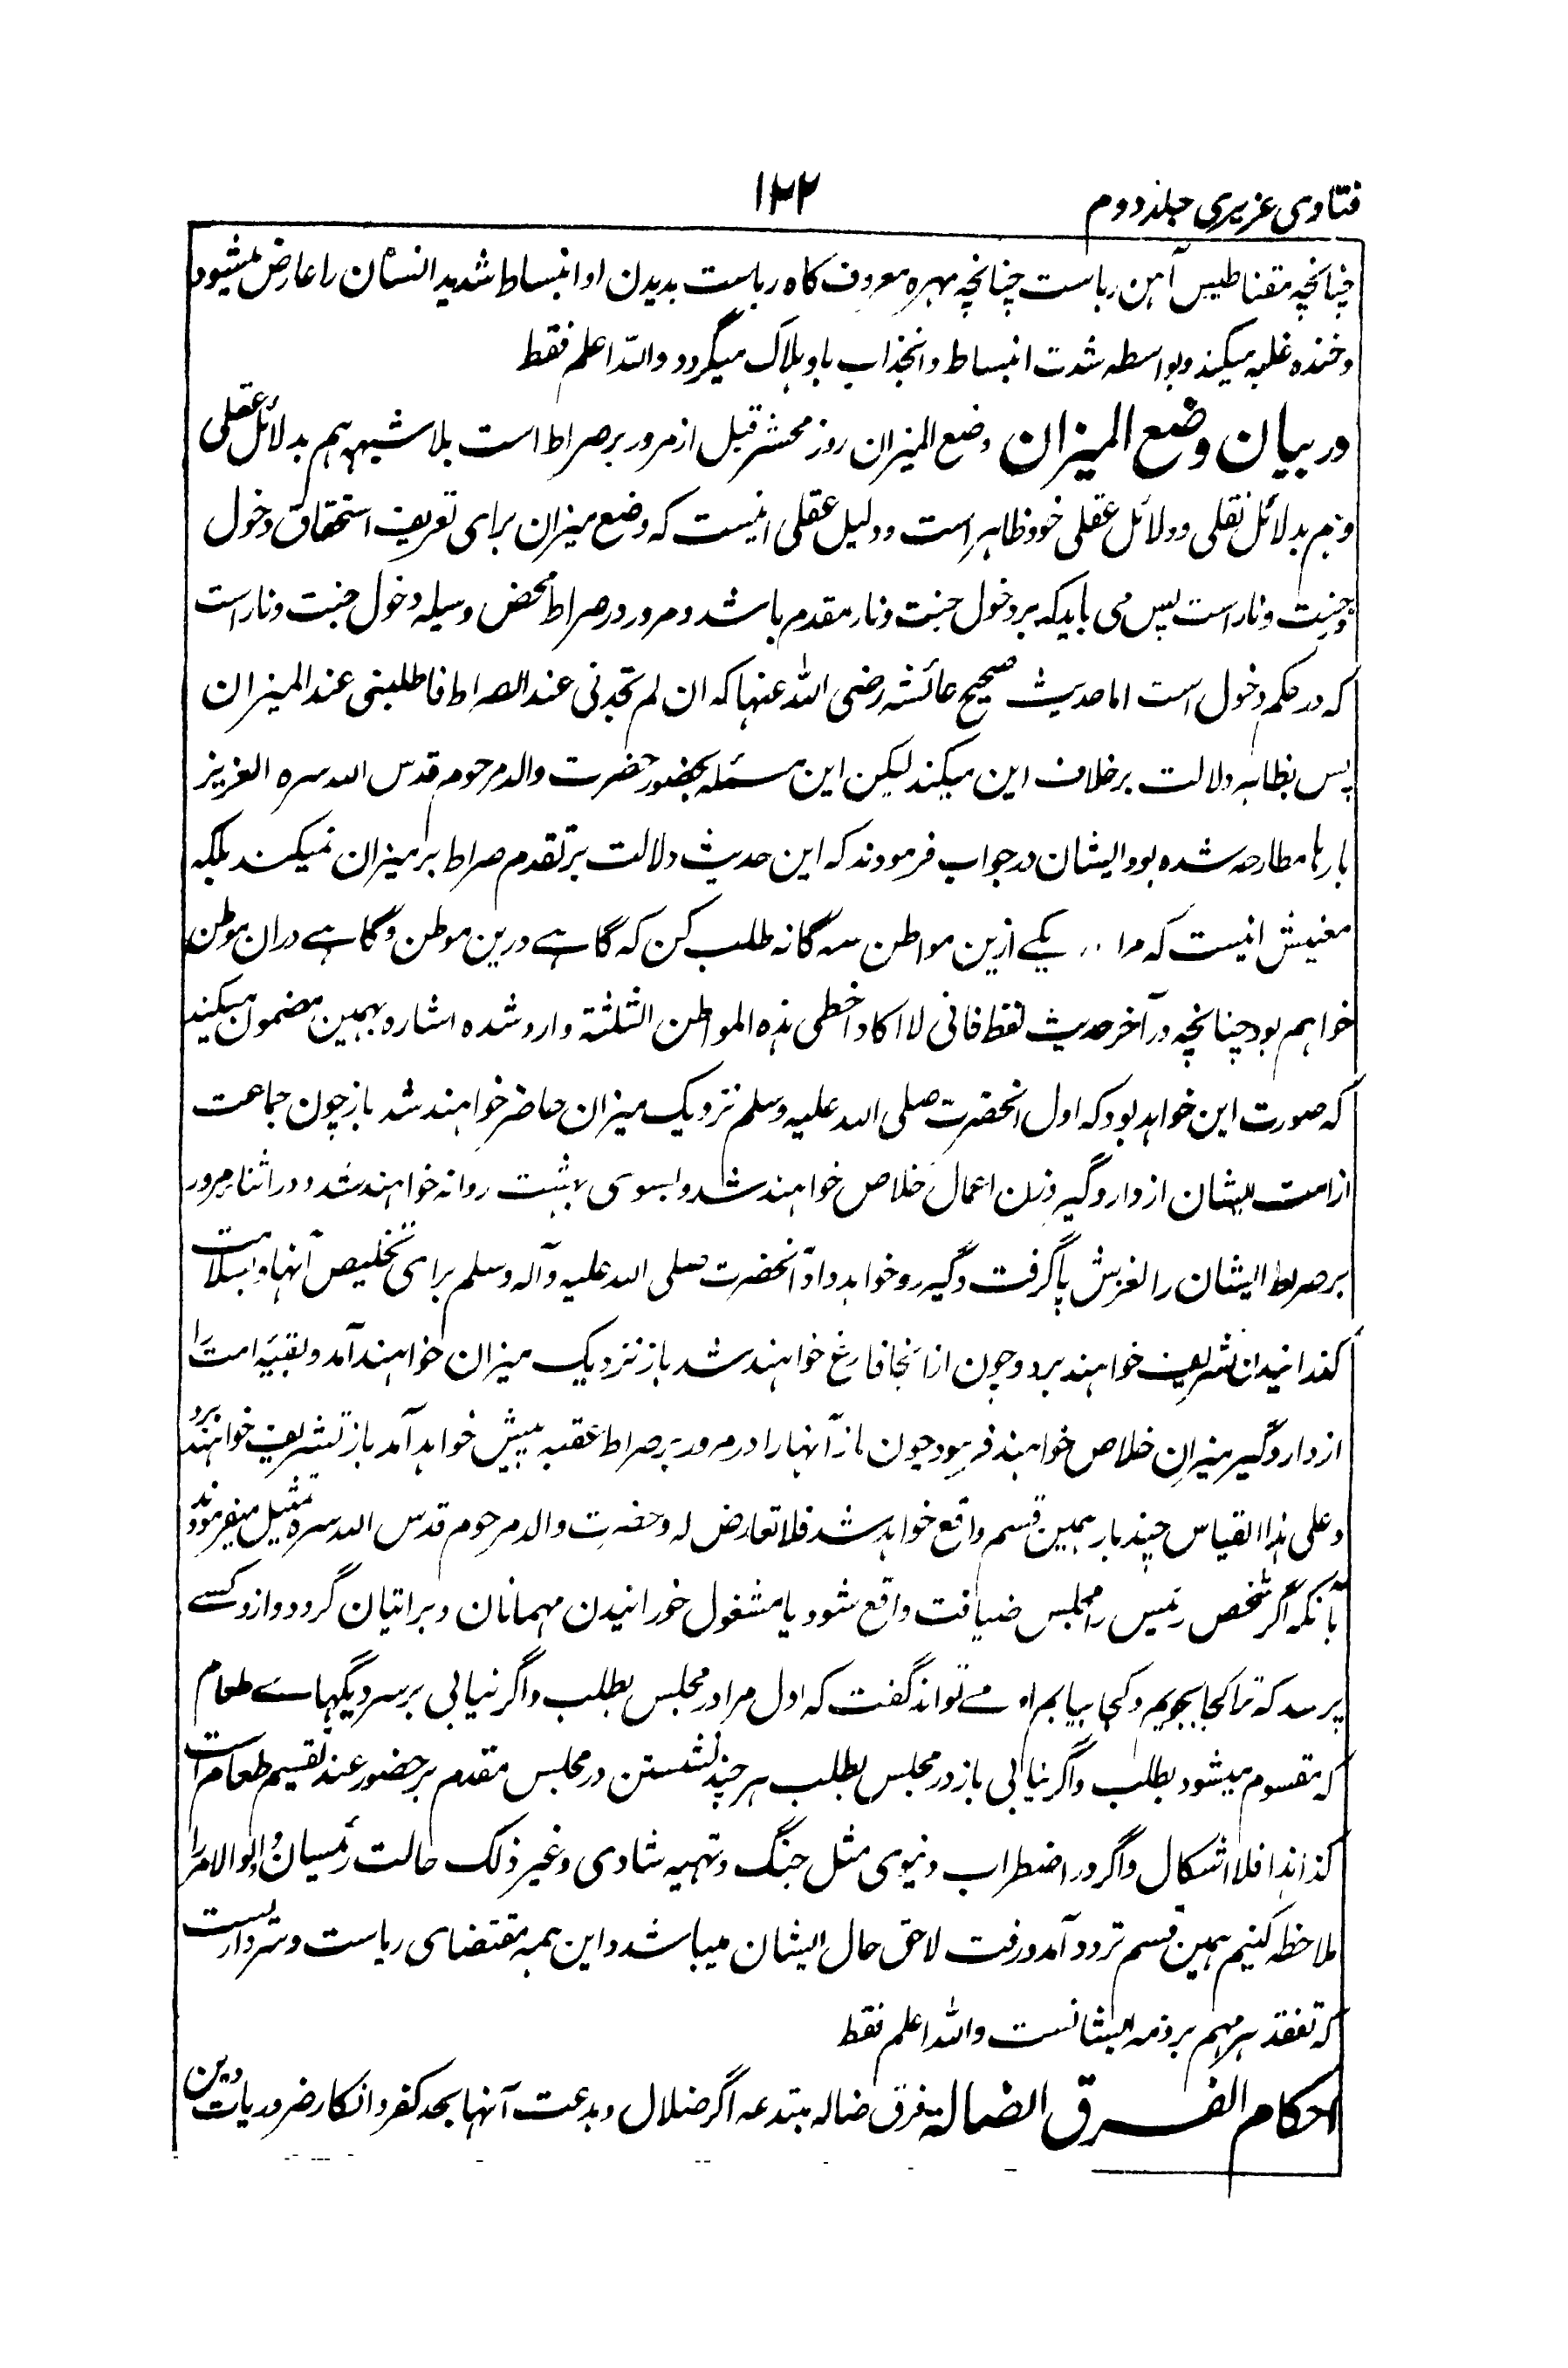 فتاوی عزیزی جلد دوم
۱۲۲
چنانچه مقناطیس آهن رباست چنانچه مهره معروف کاه رباست بدیدن او انبساط شدید انسان را عارض میشود
و خنده غلبه میکند و بواسطه شدت انبساط و انجذاب باو هلاک میگردد والله اعلم فقط
در بیان وضع المیزان وضع المیزان روز محشر قبل از مرور بر صراط است بلا شبهه هم بدلائل عقلی
و هم بدلائل نقلی و دلائل عقلی خود ظاهر است و دلیل عقلی اینست که وضع میزان برای تعریف استحقاق دخول
جنت و نار است پس می باید که بر دخول جنت و نار مقدم باشد و مرور در صراط محض وسیله دخول جنت و نار است
که در حکم دخول است اما حدیث صحیح عائشه رضی الله عنها که ان لم تجدنی عند الصراط فاطلبنی عند المیزان
پس بظاهر دلالت برخلاف این میکند لیکن این مسئله بحضور حضرت والد مرحوم قدس الله سره العزیز
بارها مطارحه شده بود ایشان در جواب فرمودند که این حدیث دلالت بر تقدم صراط بر میزان نمیکند بلکه
معنیش اینست که مرا .. یکے ازین مواطن سه گانه طلب کن که گاهے درین موطن و گاهے دران موطن
خواهم بود چنانچه در آخر حدیث لفظ فانی لا اکاد اخطی هذه المواطن الثلثة وارد شده اشاره بهمین مضمون میکند
که صورت این خواهد بود که اول آنحضرت صلی الله علیه وسلم نزدیک میزان حاضر خواهند شد باز چون جماعت
از امت ایشان از دار و گیر وزن اعمال خلاص خواهند شد و بسوی بهشت روانه خواهند شد و در اثناء مرور
بر صراط ایشان را لغزش پا گرفت و گیر رو خواهد داد آنحضرت صلی الله علیه وآله وسلم برای تخلیص آنها و بسلامت
گذرانیدن تشریف خواهند برد و چون از آنجا فارغ خواهند شد باز نزدیک میزان خواهند آمد و بقیه امت را
از دار و گیر میزان خلاص خواهند فرمود چون باز آنها را در مرور بر صراط عقبه پیش خواهد آمد باز تشریف خواهند برد
و علی هذا القیاس چند بار همین قسم واقع خواهد شد فلا تعارض له و حضرت والد مرحوم قدس الله سره تمثیل میفرمودند
بآنکه اگر شخص رئیس را مجلس ضیافت واقع شود یا مشغول خورانیدن مهمانان و براتیان گردد و ازو کسے
پرسد که ترا کجا بجویم و کجا بیابم او مے تواند گفت که اول مرا در مجلس بطلب و اگر نیابی بر سر دیگهاے طعام
که مقسوم میشود بطلب و اگر نیابی باز در مجلس بطلب هر چند نشستن در مجلس مقدم بر حضور عند تقسیم طعام است
کذا هذا فلا اشکال و اگر در اضطراب دنیوی مثل جنگ و تهیه شادی و غیر ذلک حالت رئیسان و اولو الامر را
ملاحظه کنیم همین قسم تردد آمد و رفت لاحق حال ایشان میباشد و این همه مقتضای ریاست و سرداریست
که تفقد هر مهم بر ذمه ایشانست والله اعلم فقط
احکام الفرق الضالة فرق ضاله مبتدعه اگر ضلال و بدعت آنها بحد کفر و انکار ضروریات دین